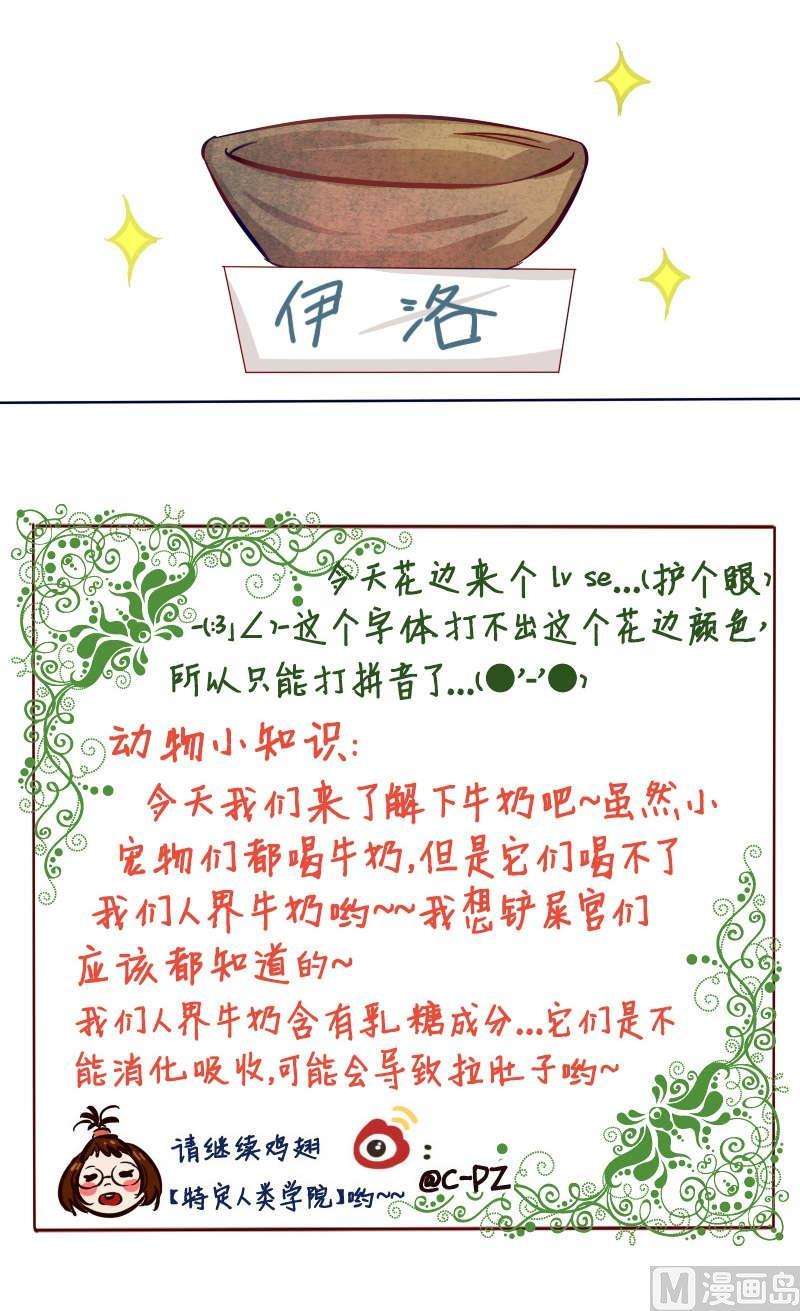 伊洛
今天花边来个 lv se...(护个眼)
-(:3」∠)-这个字体打不出这个花边颜色,
所以只能打拼音了...(●'-'●)
动物小知识:
今天我们来了解下牛奶吧~虽然小
宠物们都喝牛奶,但是它们喝不了
我们人界牛奶哟~~我想铲屎官们
应该都知道的~
我们人界牛奶含有乳糖成分...它们是不
能消化吸收,可能会导致拉肚子哟~
请继续鸡翅
【特定人类学院】哟~~
:
@C-PZ
M 漫画岛